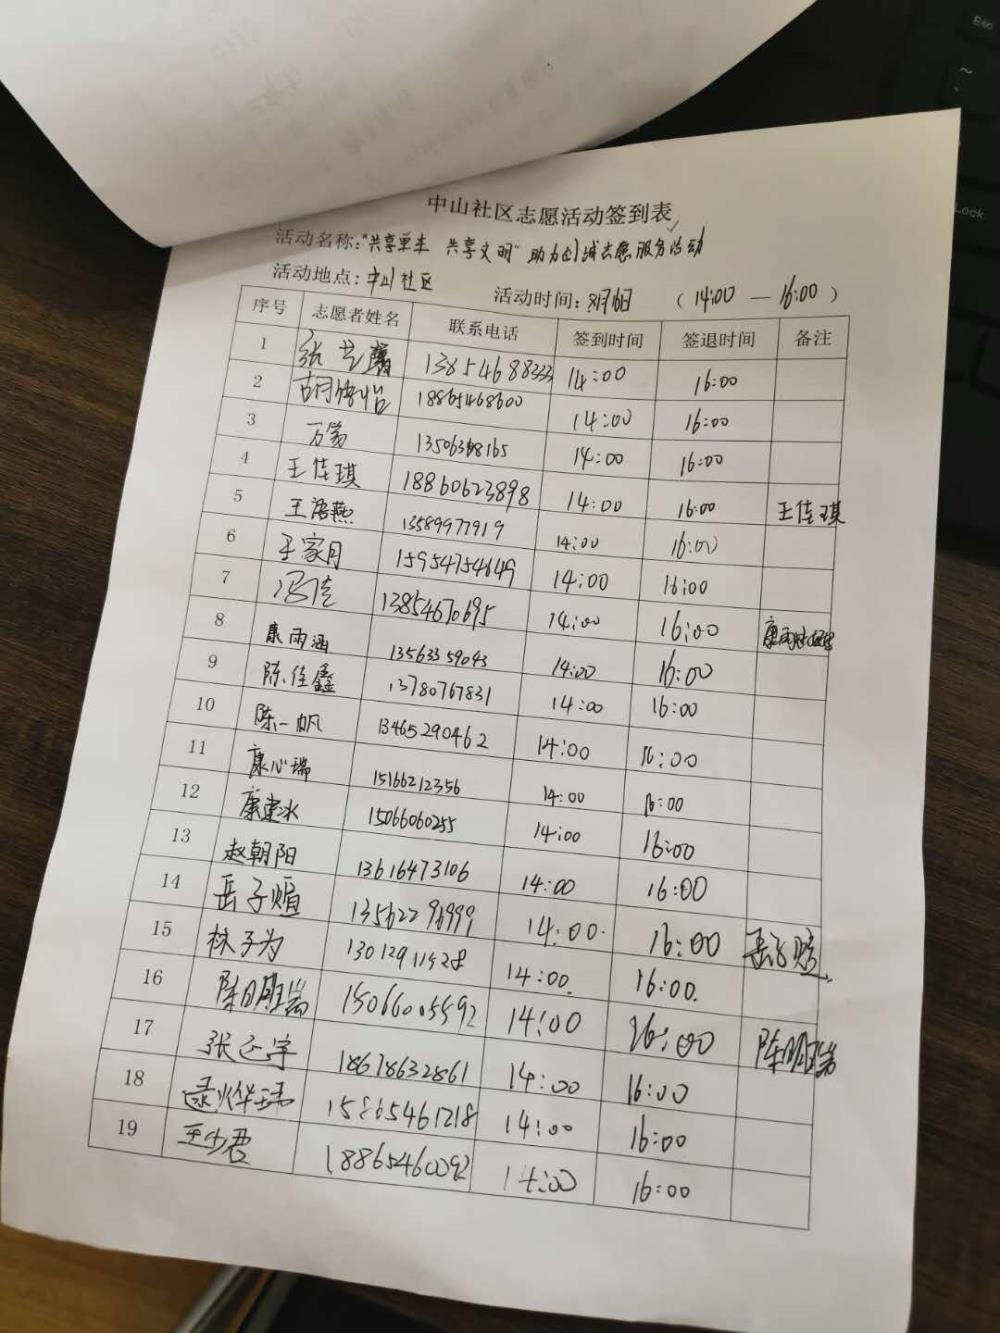 中山社区志愿活动签到表
活动名称:"共享单车 共享文明"助力创城志愿服务活动
活动地点:中山社区 活动时间:8月6日 (14:00 — 16:00)
序号 志愿者姓名 联系电话 签到时间 签退时间 备注
1 张艺馨 13854688333 14:00 16:00
2 胡馨怡 18865468600 14:00 16:00
3 万笛 14:00 16:00
4 王佳琪 18860623898 14:00 16:00 王佳琪
5 王语燕 13589977919 14:00 16:00
6 王家月 15954754649 14:00 16:00
7 冯佳 13854670695 14:00 16:00
8 康雨涵 13563359043 14:00 16:00
9 陈佳鑫 13780767831 14:00 16:00
10 陈一帆 13465290462 14:00 16:00
11 康心瑞 15166212356 14:00 16:00
12 康建冰 15066060255 14:00 16:00
13 赵朝阳 13616473106 14:00 16:00
14 岳子煊 13562296999 14:00. 16:00
15 林子为 14:00. 16:00.
16 15066005592 14:00 16:00
17 张正宇 18678632861 14:00 16:00
18 逯烨玮 15865461218 14:00 16:00
19 王少君 18865460092 14:00 16:00
Esc
~
Lock